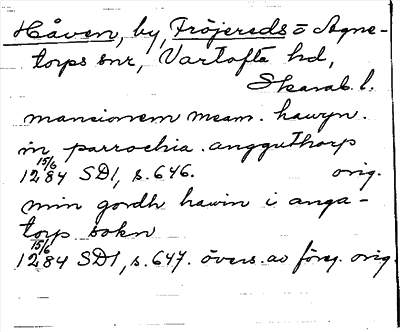 Håven, by, Fröjereds o Agne-
torps snr, Vartofta hd,
Skarab. l.
mansionem meam. hawyn.
in parrochia. angguthorp
15/6
1284 SD1, s. 646. orig.
min gordh hawin i anga-
torp sokn
15/6
1284 SD1, s. 647. övers. av föreg. orig.